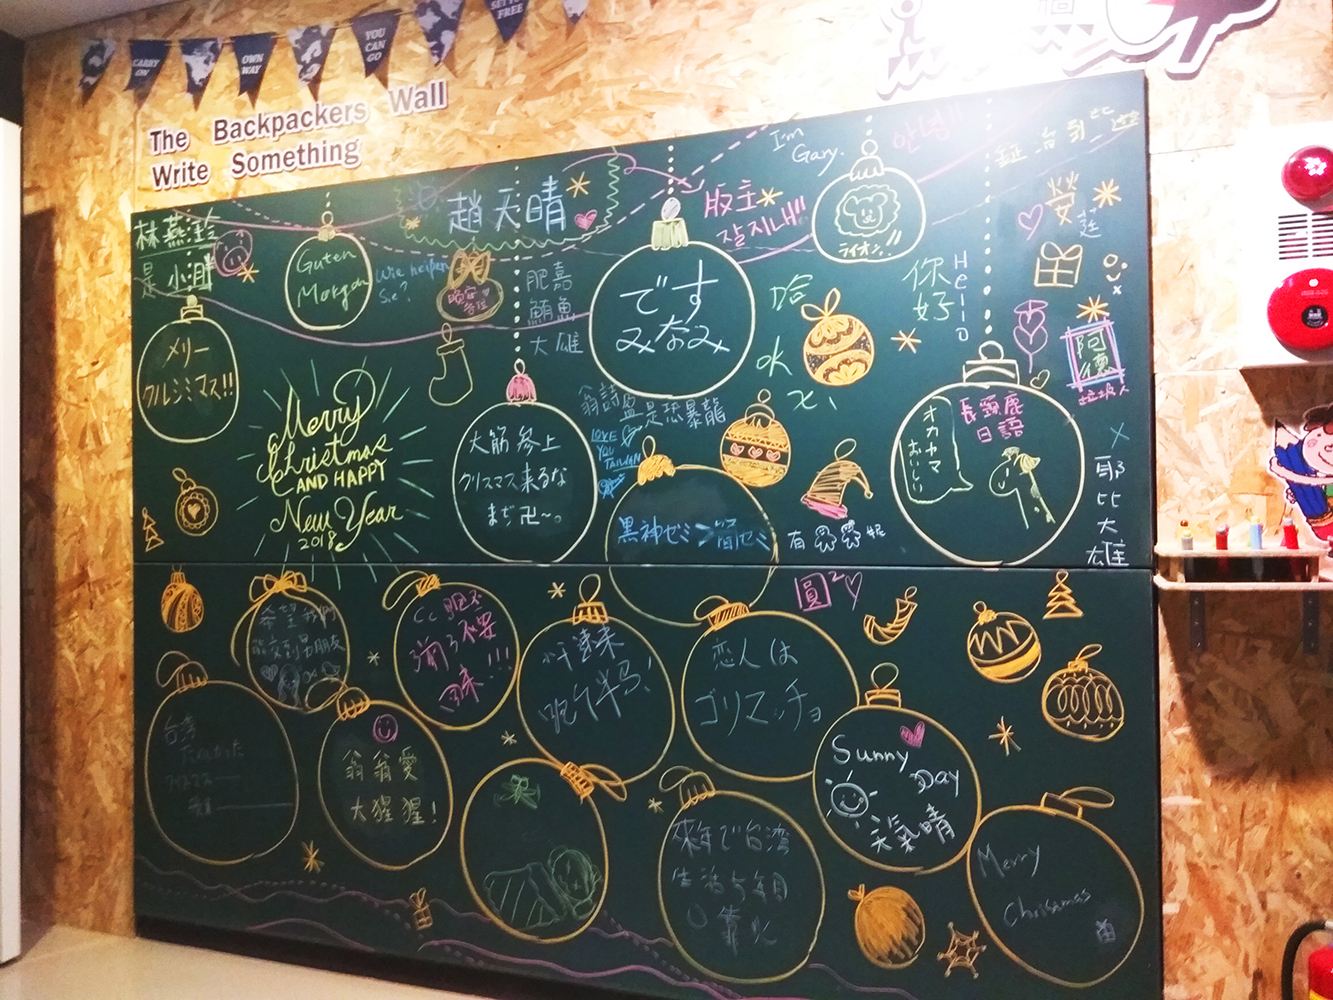 CARRY ON
OWN WAY
YOU CAN GO
SET FREE
The Backpackers Wall
Write Something
I'm
Gary.
안녕!!
林燕
是小晴
趙天晴
版主
잘지내!!
ライオン!!
Guten
Morgen
Wie heißen
Sie?
晚安
各位
肥嘉
鮪魚
大雄
です
みなみ
哈
你好
Hello
阿德
メリー
クルシミマス!!
Merry
Christmas
AND HAPPY
New Year
2018
大筋参上
クリスマス来るな
まぢ卍~。
翁詩盈是恐暴龍
LOVE
YOU
TAIWAN
オカヤマ
おいしい
長頸鹿
日語
耶比大雄
黒神ゼミ>笛ゼミ
有
圓2
希望我們
能交到男朋友
恋人は
ゴリマッチョ
台湾
翁翁愛
大猩猩!
Sunny
Day
天氣晴
来年で台湾
生活
Merry
Chrismas